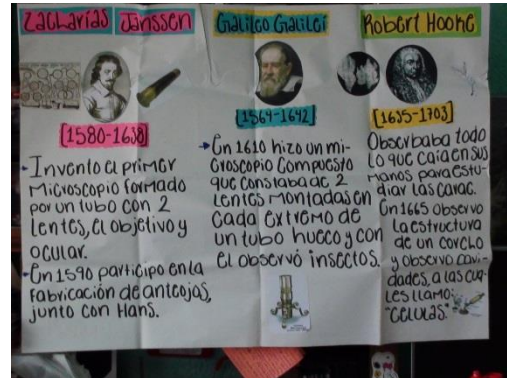 Zacharías Janssen
[1580-1638]
Invento el primer
Microscopio formado
por un tubo con 2
lentes, el objetivo y
ocular.
En 1590 participo en la
Fabricación de anteojos,
junto con Hans.
Galileo Galilei
[1564-1642]
En 1610 hizo un mi-
croscopio compuesto
que constaba de 2
lentes montadas en
cada extremo de
un tubo hueco y con
el observó insectos.
Robert Hooke
[1635-1703]
Observaba todo
lo que caia en sus
manos para estu-
diar las carac.
En 1665 observo
la estructura
de un corcho
y observo cavi-
dades, a las cua-
les llamo:
"CELULAS".